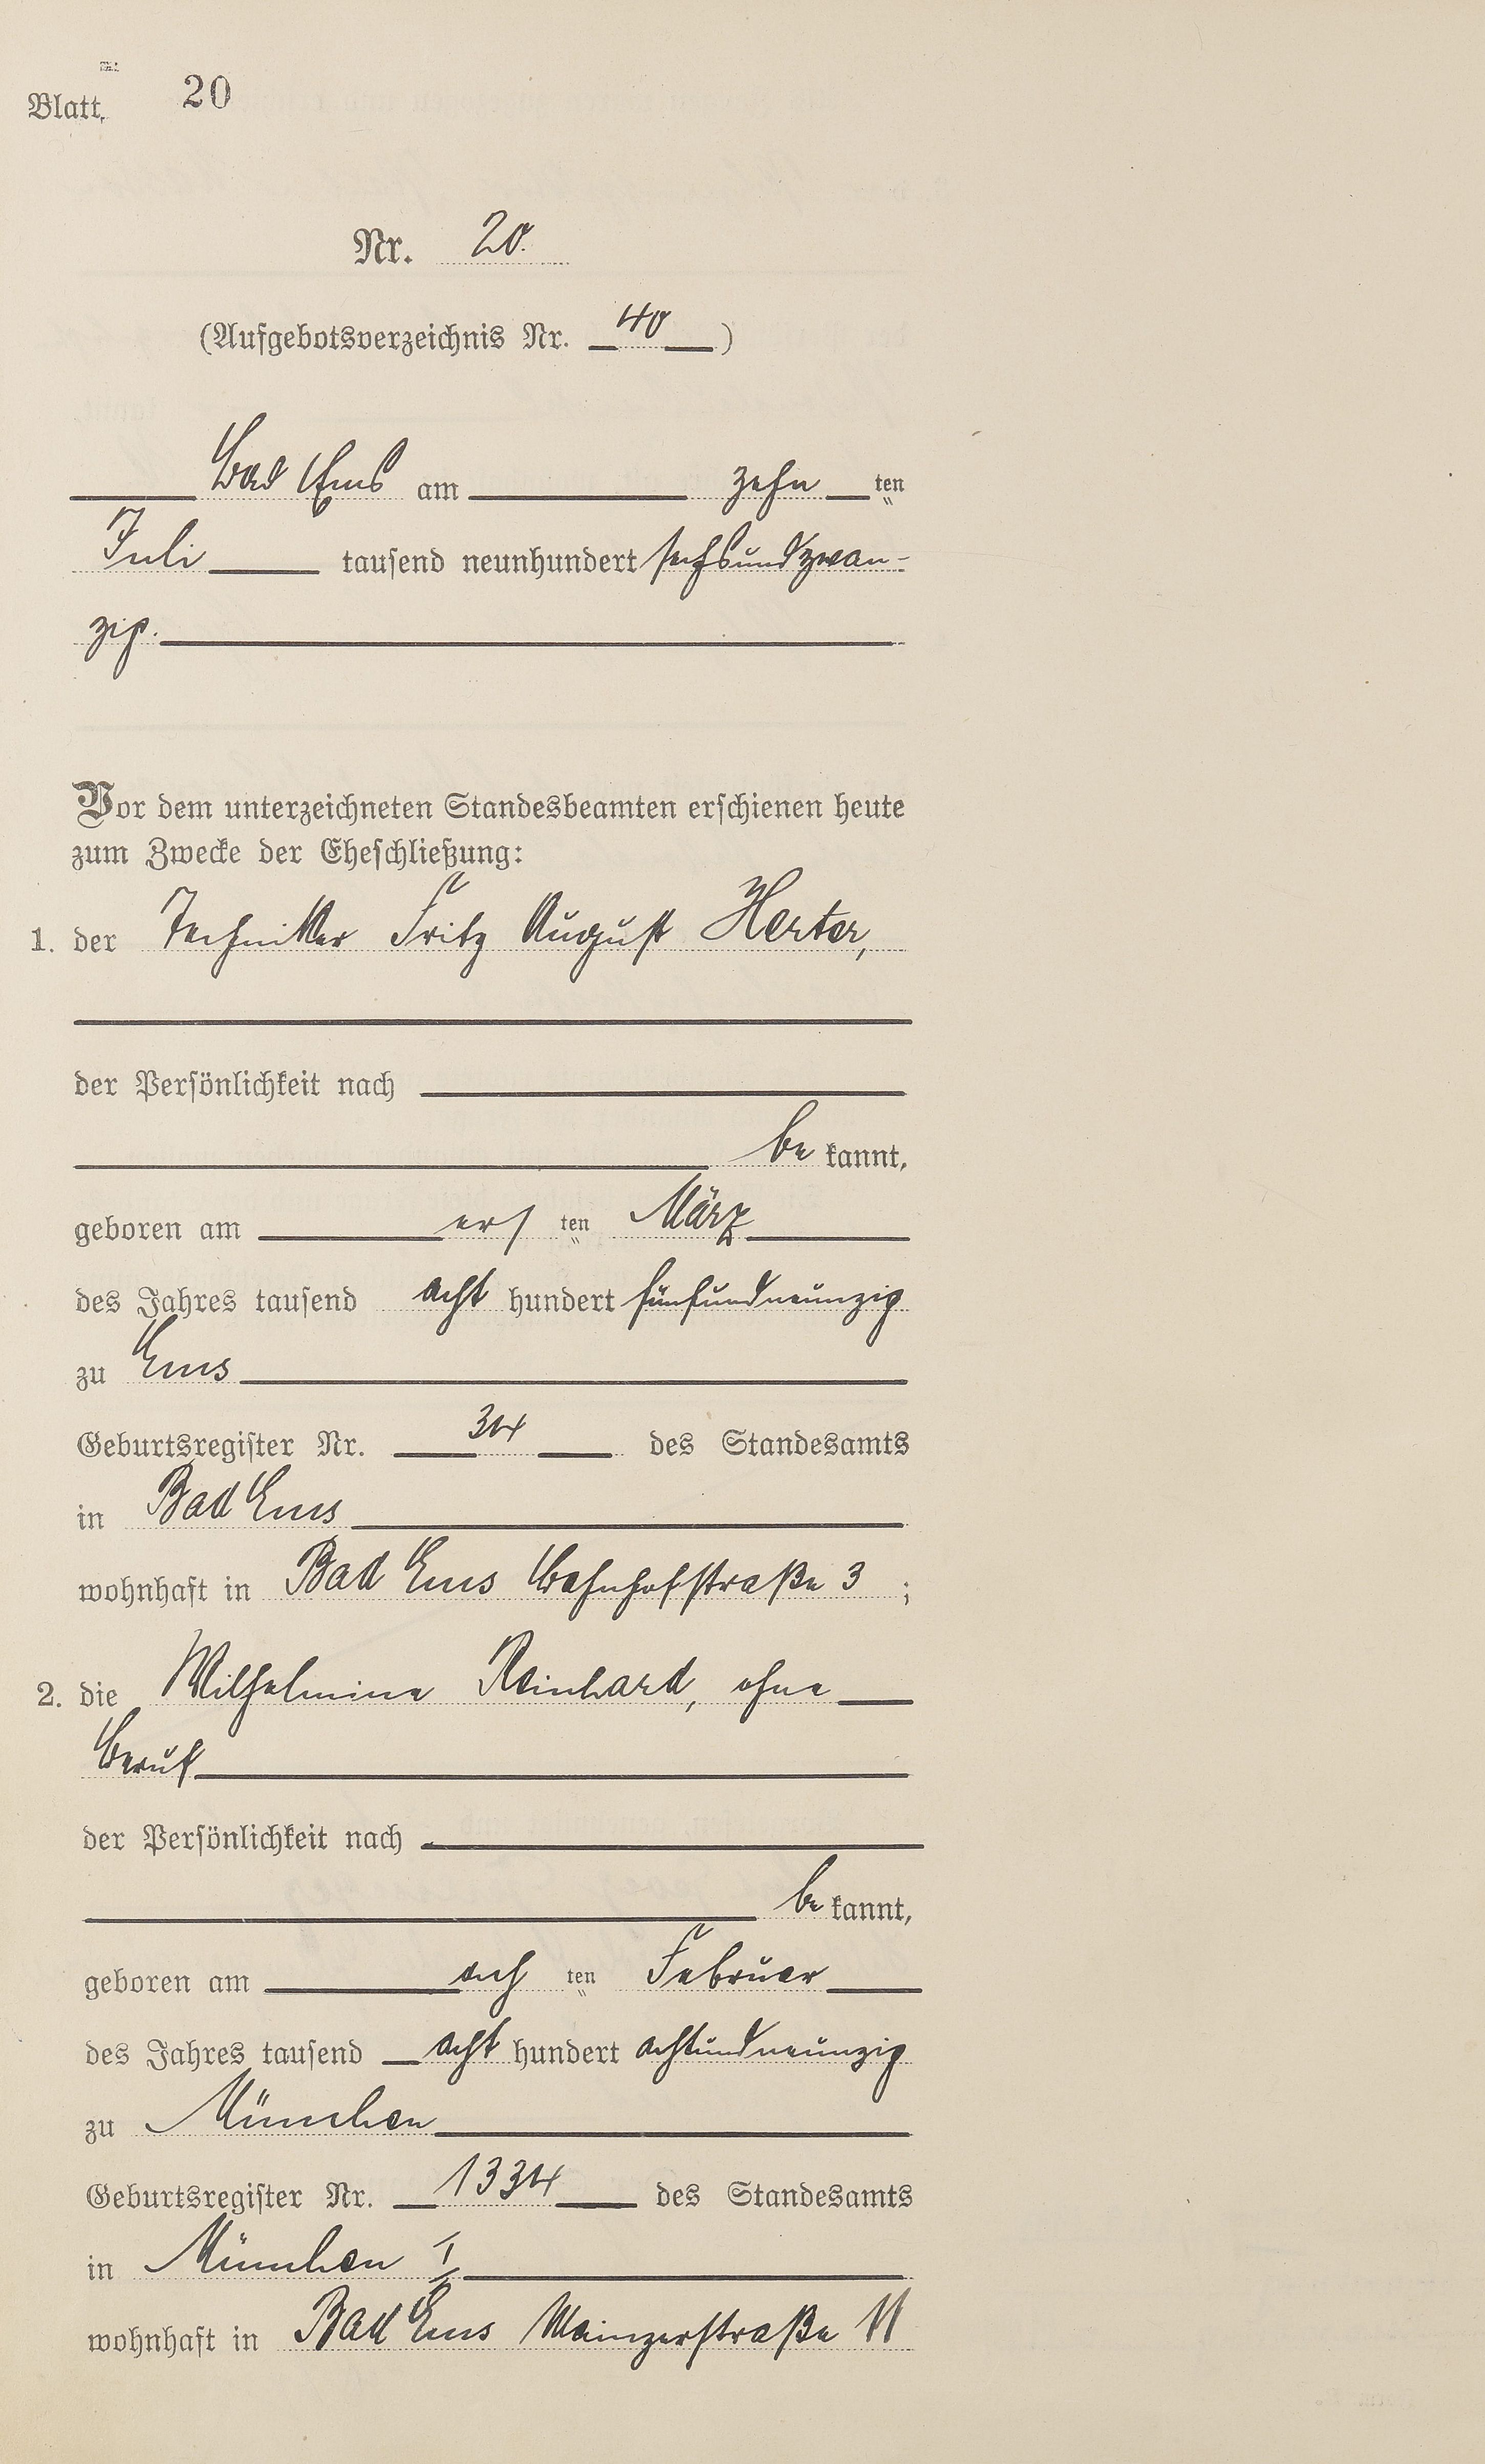 Blatt. 20
Nr. 20.
(Aufgebotsverzeichnis Nr. 40)
Bad Ems am zehn ten
Juli tausend neunhundert sechsundzwan-
zig.
Vor dem unterzeichneten Standesbeamten erschienen heute
zum Zwecke der Eheschließung:
1. der Techniker Fritz August Herter,
der Persönlichkeit nach
be kannt,
geboren am ers ten März
des Jahres tausend acht hundert fünfundneunzig
zu Ems
Geburtsregister Nr. 34 des Standesamts
in Bad Ems
wohnhaft in Bad Ems Bahnhofstraße 3 ;
2. die Wilhelmine Reinhard, ohne
Beruf
der Persönlichkeit nach
be kannt,
geboren am ach ten Februar
des Jahres tausend acht hundert achtundneunzig
zu München
Geburtsregister Nr. 1334 des Standesamts
in München I
wohnhaft in Bad Ems Mainzerstraße 11